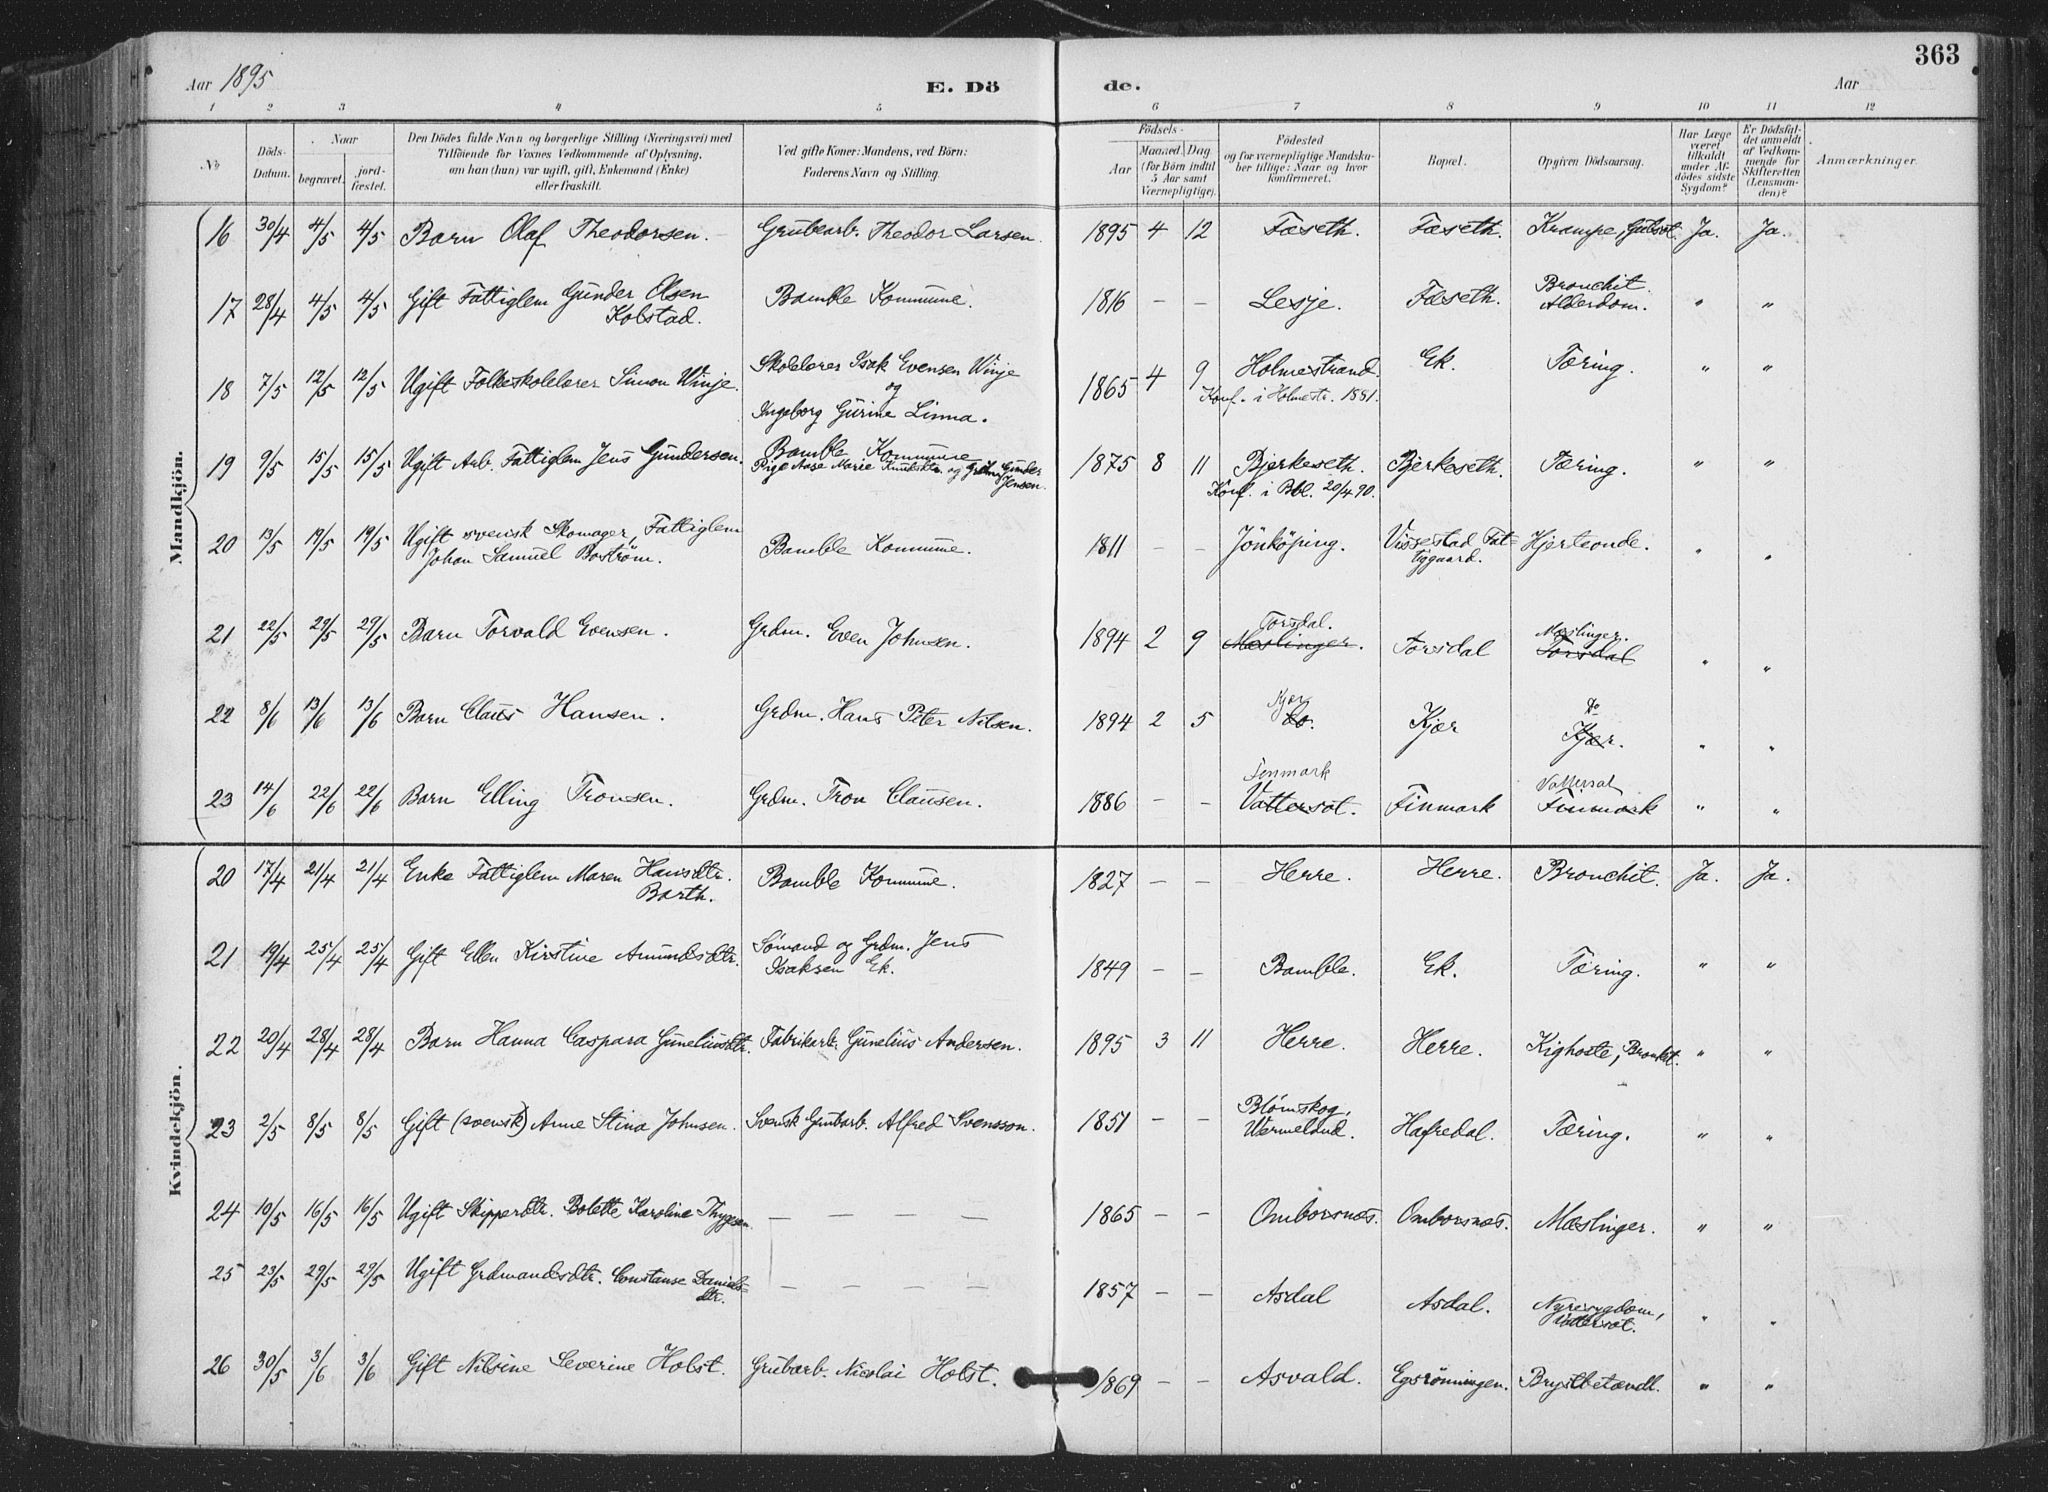 363
Aar 1895
E. Dö
de.
Aar
1 2 3 4 5 6 7 8 9 10 11 12
No
Döds-Datum.
Naar
begravet.
jordfæstet.
Den Dödes fulde Navn og borgerlige Stilling (Næringsvei) med
Tilföiende for Voxnes Vedkommende af Oplysning,
om han (hun) var ugift, gift, Enkemand (Enke)
eller fraskilt.
Ved gifte Koner: Mandens, ved Börn:
Faderens Navn og Stilling.
Födsels-
Aar
Maaned. Dag
(for Börn indtil
5 Aar samt
Værnepligtige).
Födested
og for værnepligtige Mandskaber tillige: Naar og hvor
konfirmeret.
Bopæl.
Opgiven Dödsaarsag.
Har Læge
været
tilkaldt
under Afdödes sidste
Sygdom?
Er Dödsfaldet anmeldt
af Vedkommende for
Skifteretten
(Lensmanden)?
Anmærkninger.
Mandkjön.
16 30/4 4/5 4/5 Barn Olaf Theodorsen. Grubearb. Theodor Larsen. 1895 4 12 Fæseth. Fæseth. Krampe, Gulsot. Ja. Ja.
17 28/4 4/5 4/5 Gift Fattiglem Gunder Olsen Kolstad. Bamble Kommune. 1816 — — Lesje. Fæseth. Bronchit. Alderdom. " "
18 7/5 12/5 12/5 Ugift Folkeskolelærer Simon Winje. Skolelærer Isak Evensen Winje og Ingeborg Gurine Linna. 1865 4 9 Holmestrand. Konf. i Holmestr. 1881. Ek. Tæring. " "
19 9/5 15/5 15/5 Ugift Arb. Fattiglem Jens Gundersen. Bamble Kommune Pige Aase Marie Knudsdtr. og Grdm. Gunder Jensen. 1875 8 11 Bjerkeseth. Konf. i Bbl. 20/4 90. Bjerkeseth. Tæring. " "
20 13/5 19/5 19/5 Ugift svensk Skomager, Fattiglem Johan Samuel Boström. Bamble Kommune. 1811 — — Jönköping. Vissestad Fattiggaard. Hjerteonde. " "
21 22/5 29/5 29/5 Barn Torvald Evensen. Grdm. Even Johnsen. 1894 2 9 Torsdal. Mæslinger. Torsdal Mæslinger. Torsdal " "
22 8/6 13/6 13/6 Barn Claus Hansen. Grdm. Hans Peter Nilsen. 1894 2 5 Kjær do. Kjær do Kjær. " "
23 14/6 22/6 22/6 Barn Elling Tronsen. Grdm. Tron Clausen. 1886 — — Finmark Vattersot. Finmark Vattersot Finmark " "
Kvindekjön.
20 17/4 21/4 21/4 Enke Fattiglem Maren Hansdtr. Barth. Bamble Kommune. 1827 — — Herre. Herre. Bronchit. Ja. Ja.
21 19/4 25/4 25/4 Gift Ellen Kirstine Amundsdtr. Sömand og Grdm. Jens Isaksen Ek. 1849 — — Bamble. Ek. Tæring. " "
22 20/4 28/4 28/4 Barn Hanna Caspara Guneliusdtr. Fabrikarb. Gunelius Andersen. 1895 3 11 Herre. Herre. Kighoste, Bronkit. " "
23 2/5 8/5 8/5 Gift (svensk) Anne Stina Johnsen. Svensk Grubarb. Alfred Svensson. 1851 — — Blömskog, Vermeland. Hafredal. Tæring. " "
24 10/5 16/5 16/5 Ugift Skipperdtr. Bolette Karoline Thygesen. — — — — 1865 — — Omborsnæs. Omborsnæs. Mæslinger. " "
25 23/5 29/5 29/5 Ugift Grdmandsdtr. Constanse Danielsdtr. — — — — 1857 — — Asdal Asdal. Nyresygdom, Vattersot. " "
26 30/5 3/6 3/6 Gift Nilsine Severine Holst. Grubarb. Nicolai Holst. 1869 — — Asvald. Egsrönningen. Brystbetændl. " "